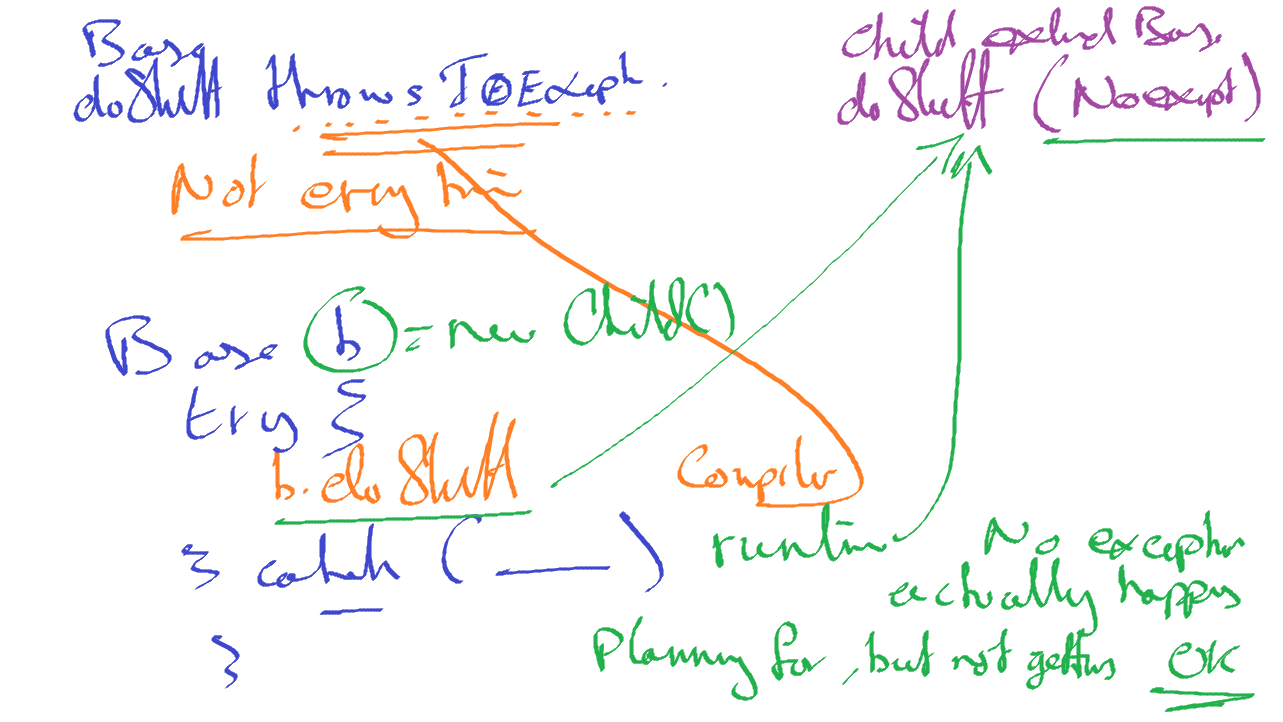 Base
doStuff throws IOExceptn.
Not every time
Child extend Base
doStuff (No except)
Base b = new Child()
try {
b.doStuff
} catch (
}
Compiler
runtime
No exception
actually happens
Planning for, but not getting OK